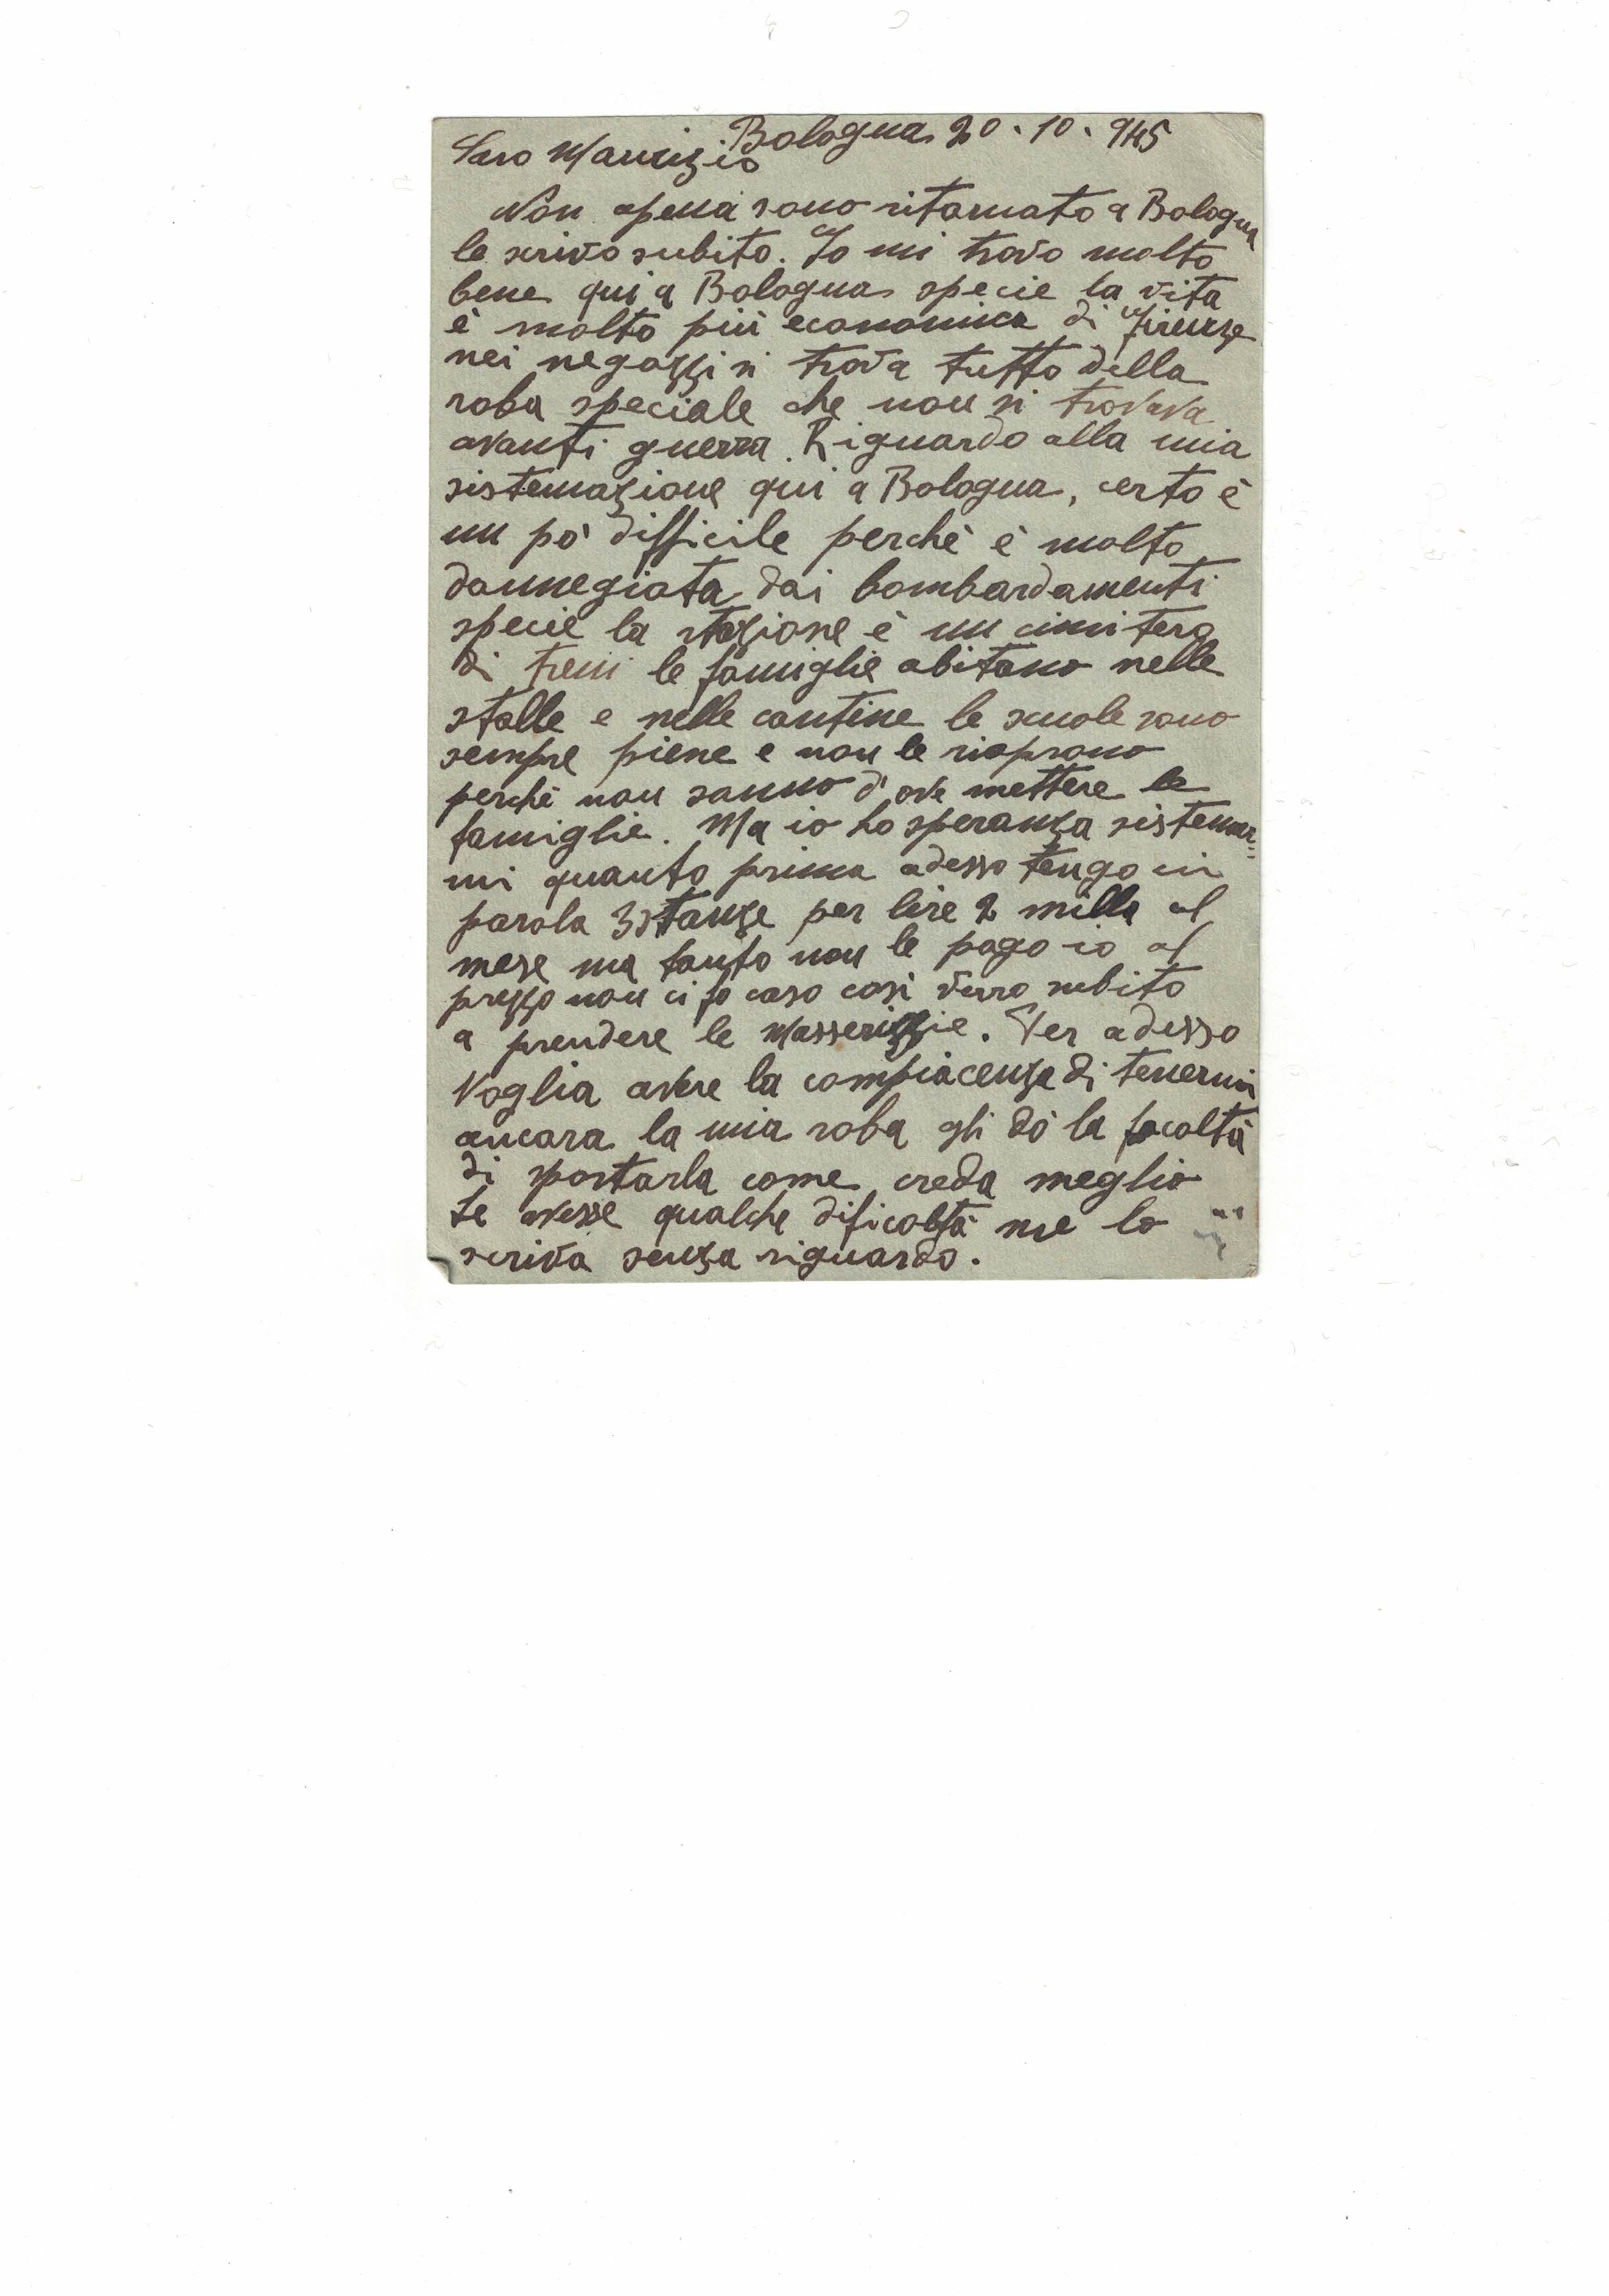 Bologna 20.10.945
Caro Maurizio
Non apena sono ritornato a Bologna
le scrivo subito. Io mi trovo molto
bene qui a Bologna specie la vita
è molto più economica di Firenze
nei negozzi si trova tutto della
roba speciale che non si trovava
avanti guerra. Riguardo alla mia
sistemazione qui a Bologna, certo è
un pò difficile perchè è molto
dannegiata dai bombardamenti
specie la stazione è un cimitero
di treni le famiglie abitano nelle
stalle e nelle cantine le scuole sono
sempre piene e non le riaprono
perchè non sanno d'ove mettere le
famiglie. Ma io ho speranza sistemar=
mi quanto prima adesso tengo in
parola 3 stanze per lire 2 milla al
mese ma tanto non le pago io al
prezzo non ci fo caso così verro subito
a prendere le Masserizzie. Per adesso
Voglia avere la compiacenza di tenermi
ancora la mia roba gli dò la facoltà
di sportarla come creda meglio
se avesse qualche dificoltà me lo
scriva senza riguardo.